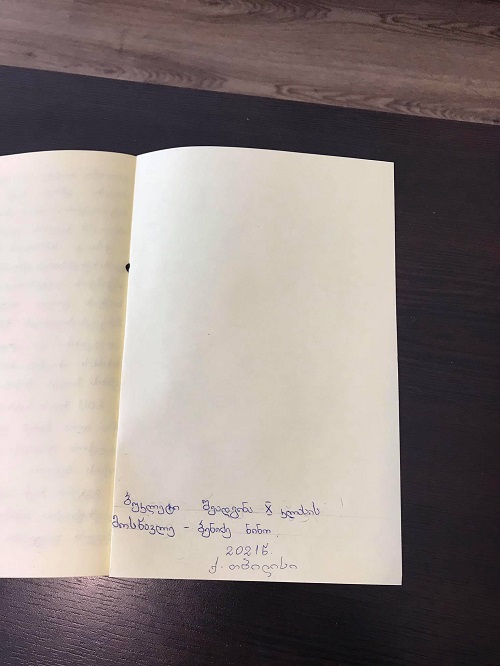 ბუკლეტი შეადგინა X კლასის
მოსწავლე - ბენიძე ნინო.
2021წ.
ქ. თბილისი